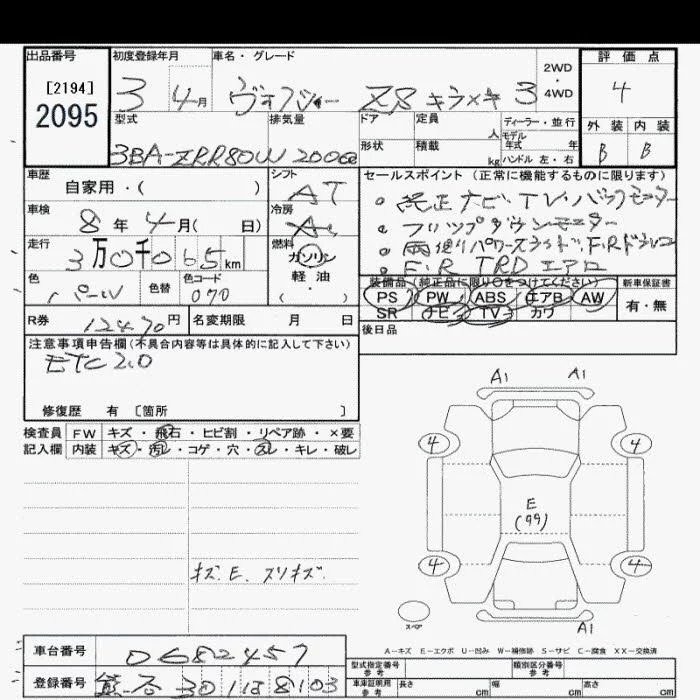 出品番号
[2194]
2095
初度登録年月
3 4月
車名・グレード
ヴォクシー ZS キラメキ 3
2WD
・
4WD
評価点
4
外装 内装
B B
型式
3BA-ZRR80W
排気量
2000cc
ドア
定員
人
ディーラー・並行
モデル
年式 年
形状
積載
kg
ハンドル 左・右
車歴
自家用・( )
シフト
AT
車検
8年 4月( 日)
冷房
走行
3万0千065km
燃料
ガソリン
・
軽油
・
( )
色
パール
色替
色コード
070
R券
12470円
名変期限 月 日
セールスポイント (正常に機能するものに限ります)
• 純正ナビ・TV・バックモニター
• フリップダウンモニター
• 両側パワースライド・F.Rドラレコ
• F.R TRD エアロ
装備品 (純正品に限り○をつけてください)
PS PW ABS エアB AW
SR ナビ TV カワ
新車保証書
有・無
後日品
注意事項申告欄(不具合内容等は具体的に記入して下さい)
ETC2.0
修復歴 有 〔箇所 〕
検査員 FW キズ・飛石・ヒビ割・リペア跡・×要
記入欄 内装 キズ・汚レ・コゲ・穴・スレ・キレ・破レ
キズ.E. スリキズ.
A1 A1
4 4
E
(99)
4 4
スペア
A1
A-キズ E-エクボ U-凹み W-補修跡 S-サビ C-腐食 XX-交換済
車台番号
0682457
登録番号
熊谷 301 は 8103
型式指定番号
参考
類別区分番号
参考
車庫証明用
参考
長さ cm
幅 cm
高さ cm